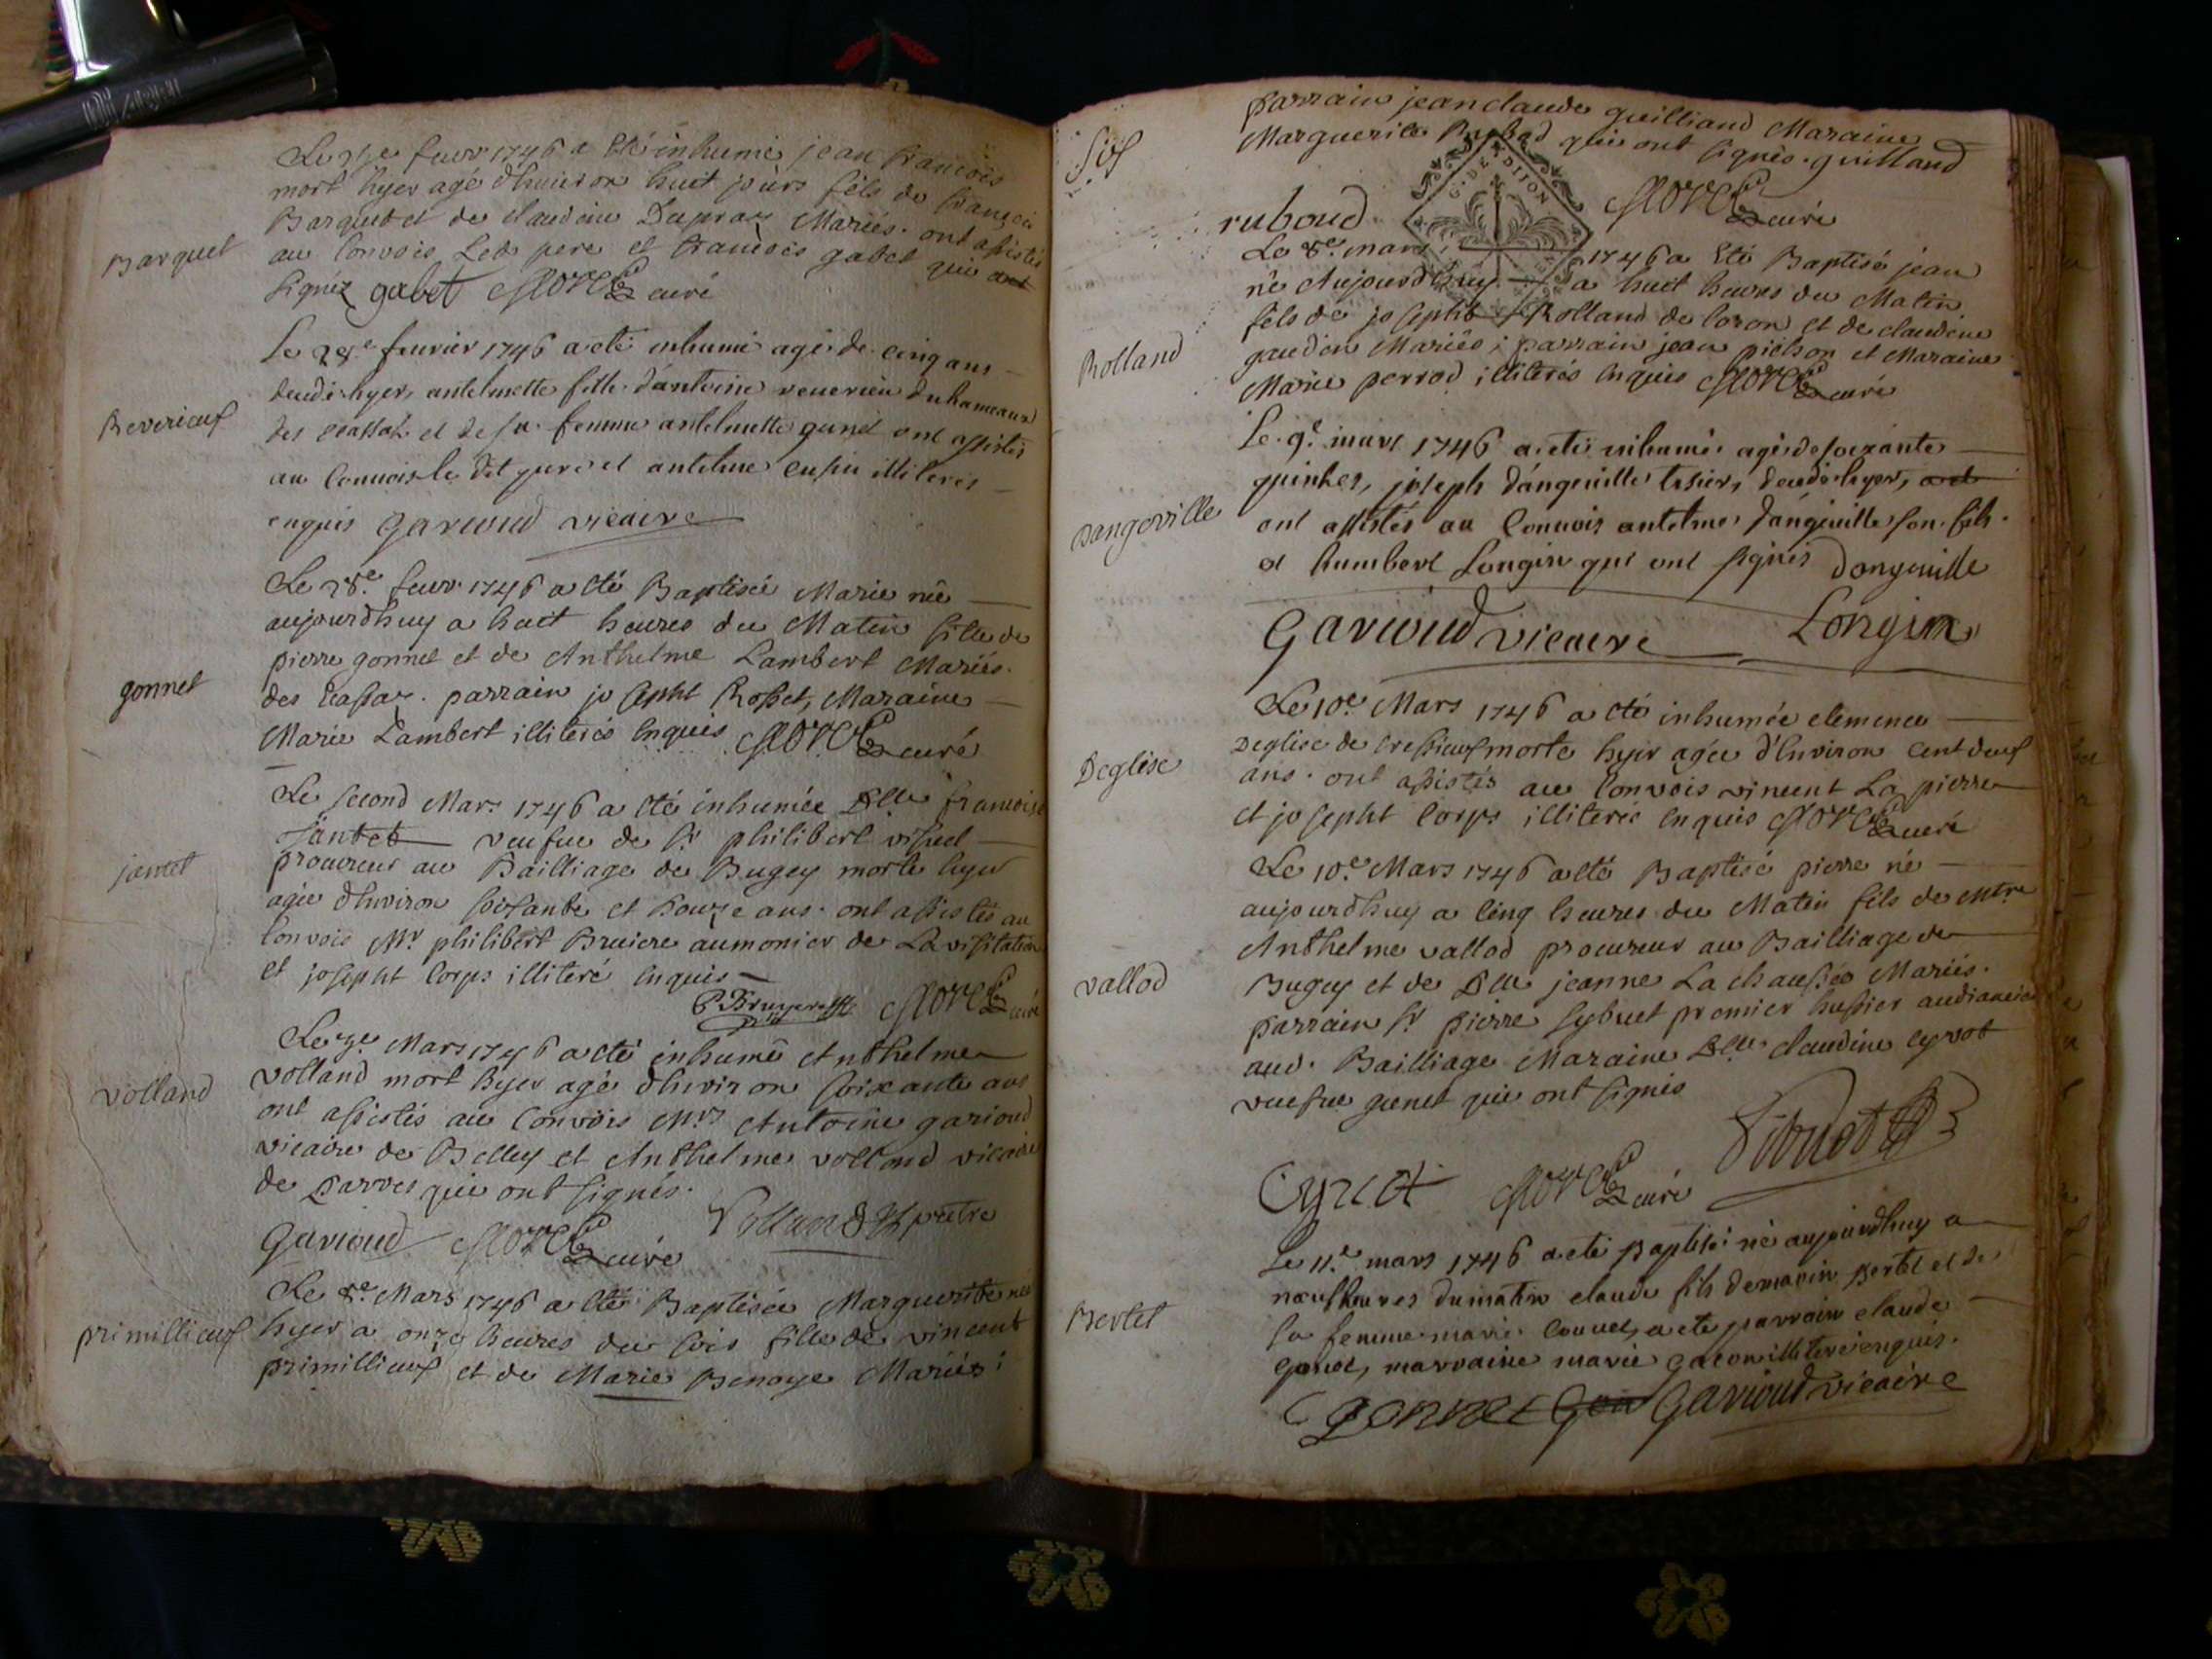 Barquet
fevr 1746 a été inhumé jean francois
mort hyer agé d'huiron huit jours fils de francois
Barquet et de claudine Dupraz Mariés. ont assistés
au convois Led. pere et francois gabet qui ont
signéz gabet curé
Reverieux
Le 28e feuvrier 1746 a eté inhumé agé de cinq ans
decedé hyer, antelmette fille d'antoine du hameaux
des et de sa femme antelmette ont assistés
au convois le dit pere et antelme illiterés
enquis garioud vicaire
gonnet
Le 28e. fevr. 1746 a eté Baptisée Marie née
aujourdhuy a huit heures du Matin fille de
pierre gonnet et de Anthelme Lambert Mariés.
des parrain josepht Rosset, Maraine
Marie Lambert illiterés Enquis curé
jantet
Le second Mars 1746 a eté inhumée Dlle francoise
jantet veufue de Sr philibert
procureur au Bailliage de Bugey morte hyer
agée d'huiron soisante et ans. ont assistés au
convois Mr philibert Bruiere aumonier de La visitation
et josepht Corps illiteré Enquis
curé
volland
Mars 1746 a eté inhumé Anthelme
volland mort hyer agé d'huiron soixante ans
ont assistés au Convois Mrs Antoine garioud
vicaire de Belley et Anthelme volland vicaire
de parves qui ont signés.
Gavioud curé Volland ptre
primillieux
Le 8e. Mars 1746 a eté Baptisée Marguerite née
hyer a onze heures du soir fille de vincent
primillieux et de Marie Benoye Mariés:
Six
parrain jean claude guilliand Maraine
Marguerite qui ont signés. guilland
ruboud. curé
G. DE DIJON
Rolland
Le 8e. mars 1746 a eté Baptisé jean
né Aujourdhuy a huit heures du Matin
fils de josepht Rolland de coron et de claudine
gaudin Mariés; parrain jean et Maraine
Marie perrod illiterés Enquis curé
Dangeville
Le 9e mars 1746 a eté inhumé agé de soixante
quinkes, joseph dangeuille tisier, decedé hyer,
ont assistés au Convois antelme dangeuille son fils.
et humbert Longin qui ont signés dangeuille
Gavioud vicaire Longin
Deglise
Le 10e Mars 1746 a eté inhumée clemence
Deglise de cressieux morte hyer agée d'Environ cent deux
ans. ont assistés au Convois vincent La pierre
et josepht Corps illiterés Enquis curé
vallod
Le 10e. Mars 1746 a eté Baptisé pierre né
aujourdhuy a Cinq heures du Matin fils de Mtre
Anthelme vallod procureur au Bailliage de
Bugey et de Dlle jeanne La chaussée Mariés.
parrain Sr pierre sybuet premier hussier audiancier
aud. Bailliage Maraine Dlle. claudine cyvot
veufue genet qui ont signés
curé
Bertet
Le 11e. mars 1746 a eté Baptisé né aujourdhuy a
neuf heures du matin claude fils de marin Bertet et de
sa femme marie a eté parrain claude
marraine marie illiteré enquis.
gonnet Gavioud vicaire